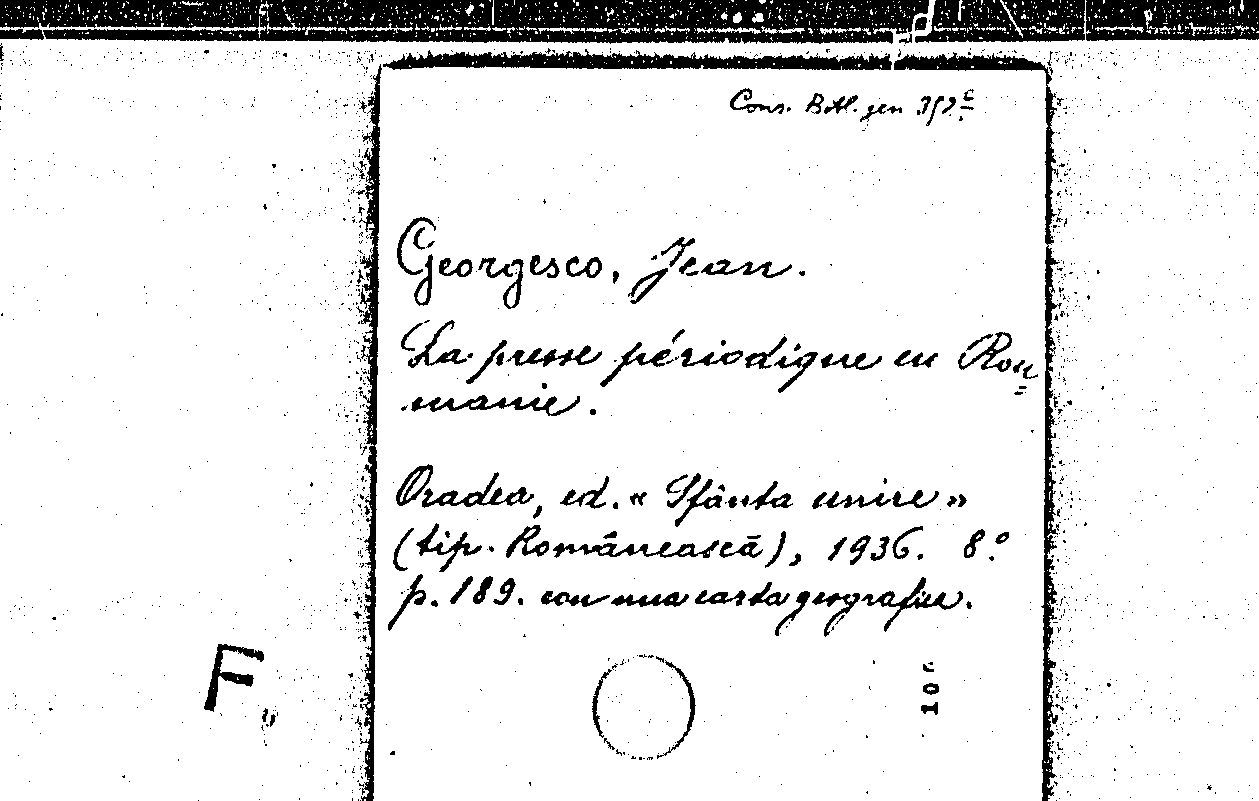 Cons. Bibl. gen 352 c
Georgesco, Jean.
La presse périodique en Rou=
manie.
Oradea, ed. « Sfânta unire »
(tip. Românească), 1936. 8.°
p. 189. con una carta geografica.
F
10